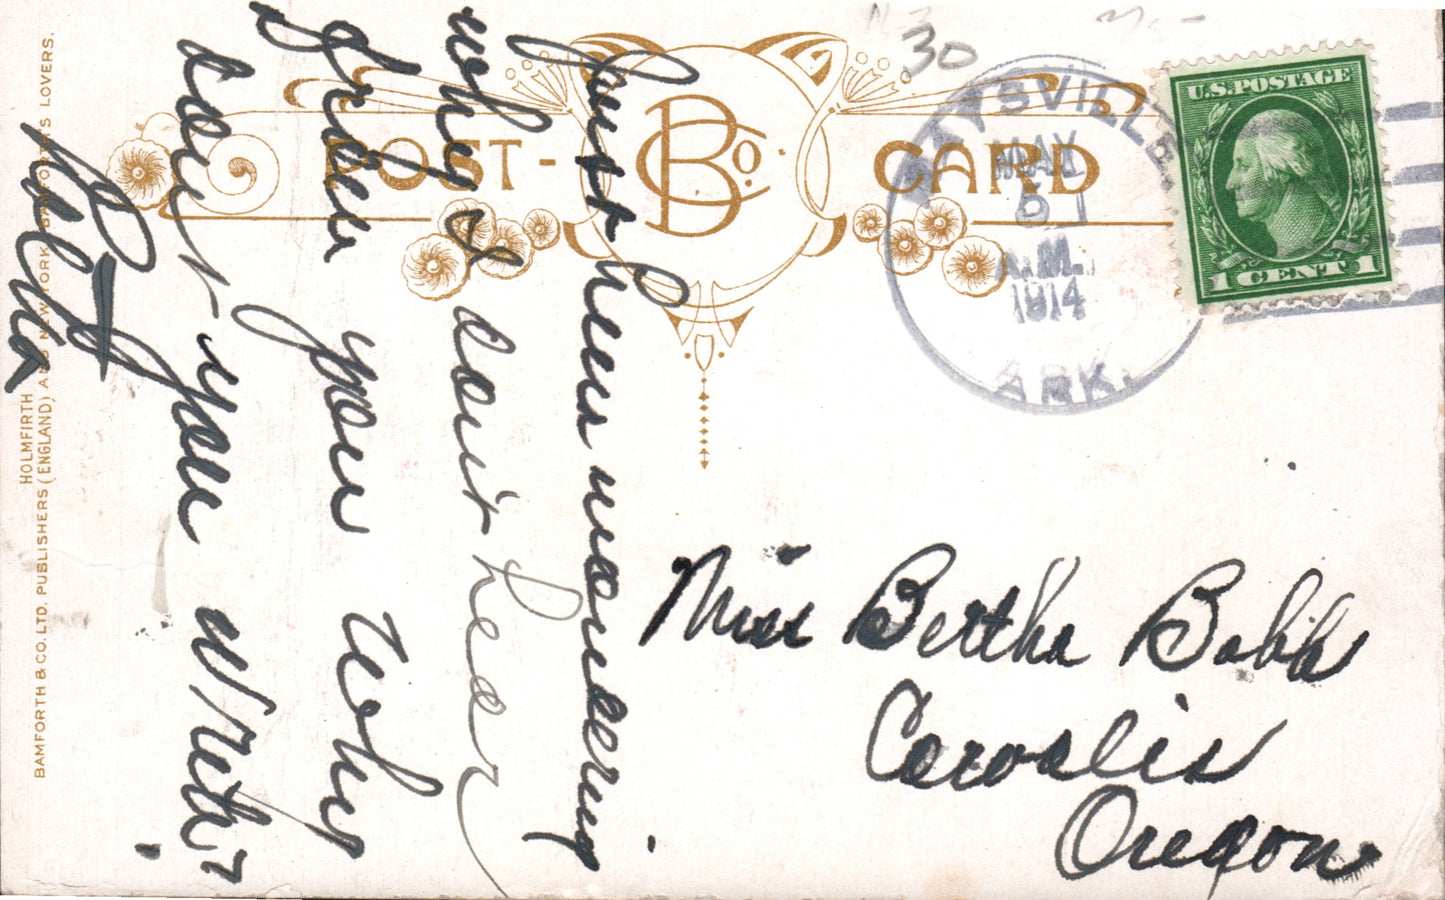 POST-CARD
B Co.
30
MAYSVILLE
MAY
5
A.M.
1914
ARK.
U.S. POSTAGE
1 CENT 1
Just been wondering
why I dont hear
from you why
dont you write?
Miss Bertha Bobb
Corvalis
Oregon
HOLMFIRTH
BAMFORTH & CO. LTD. PUBLISHERS (ENGLAND) AND NEW YORK. LOVERS.